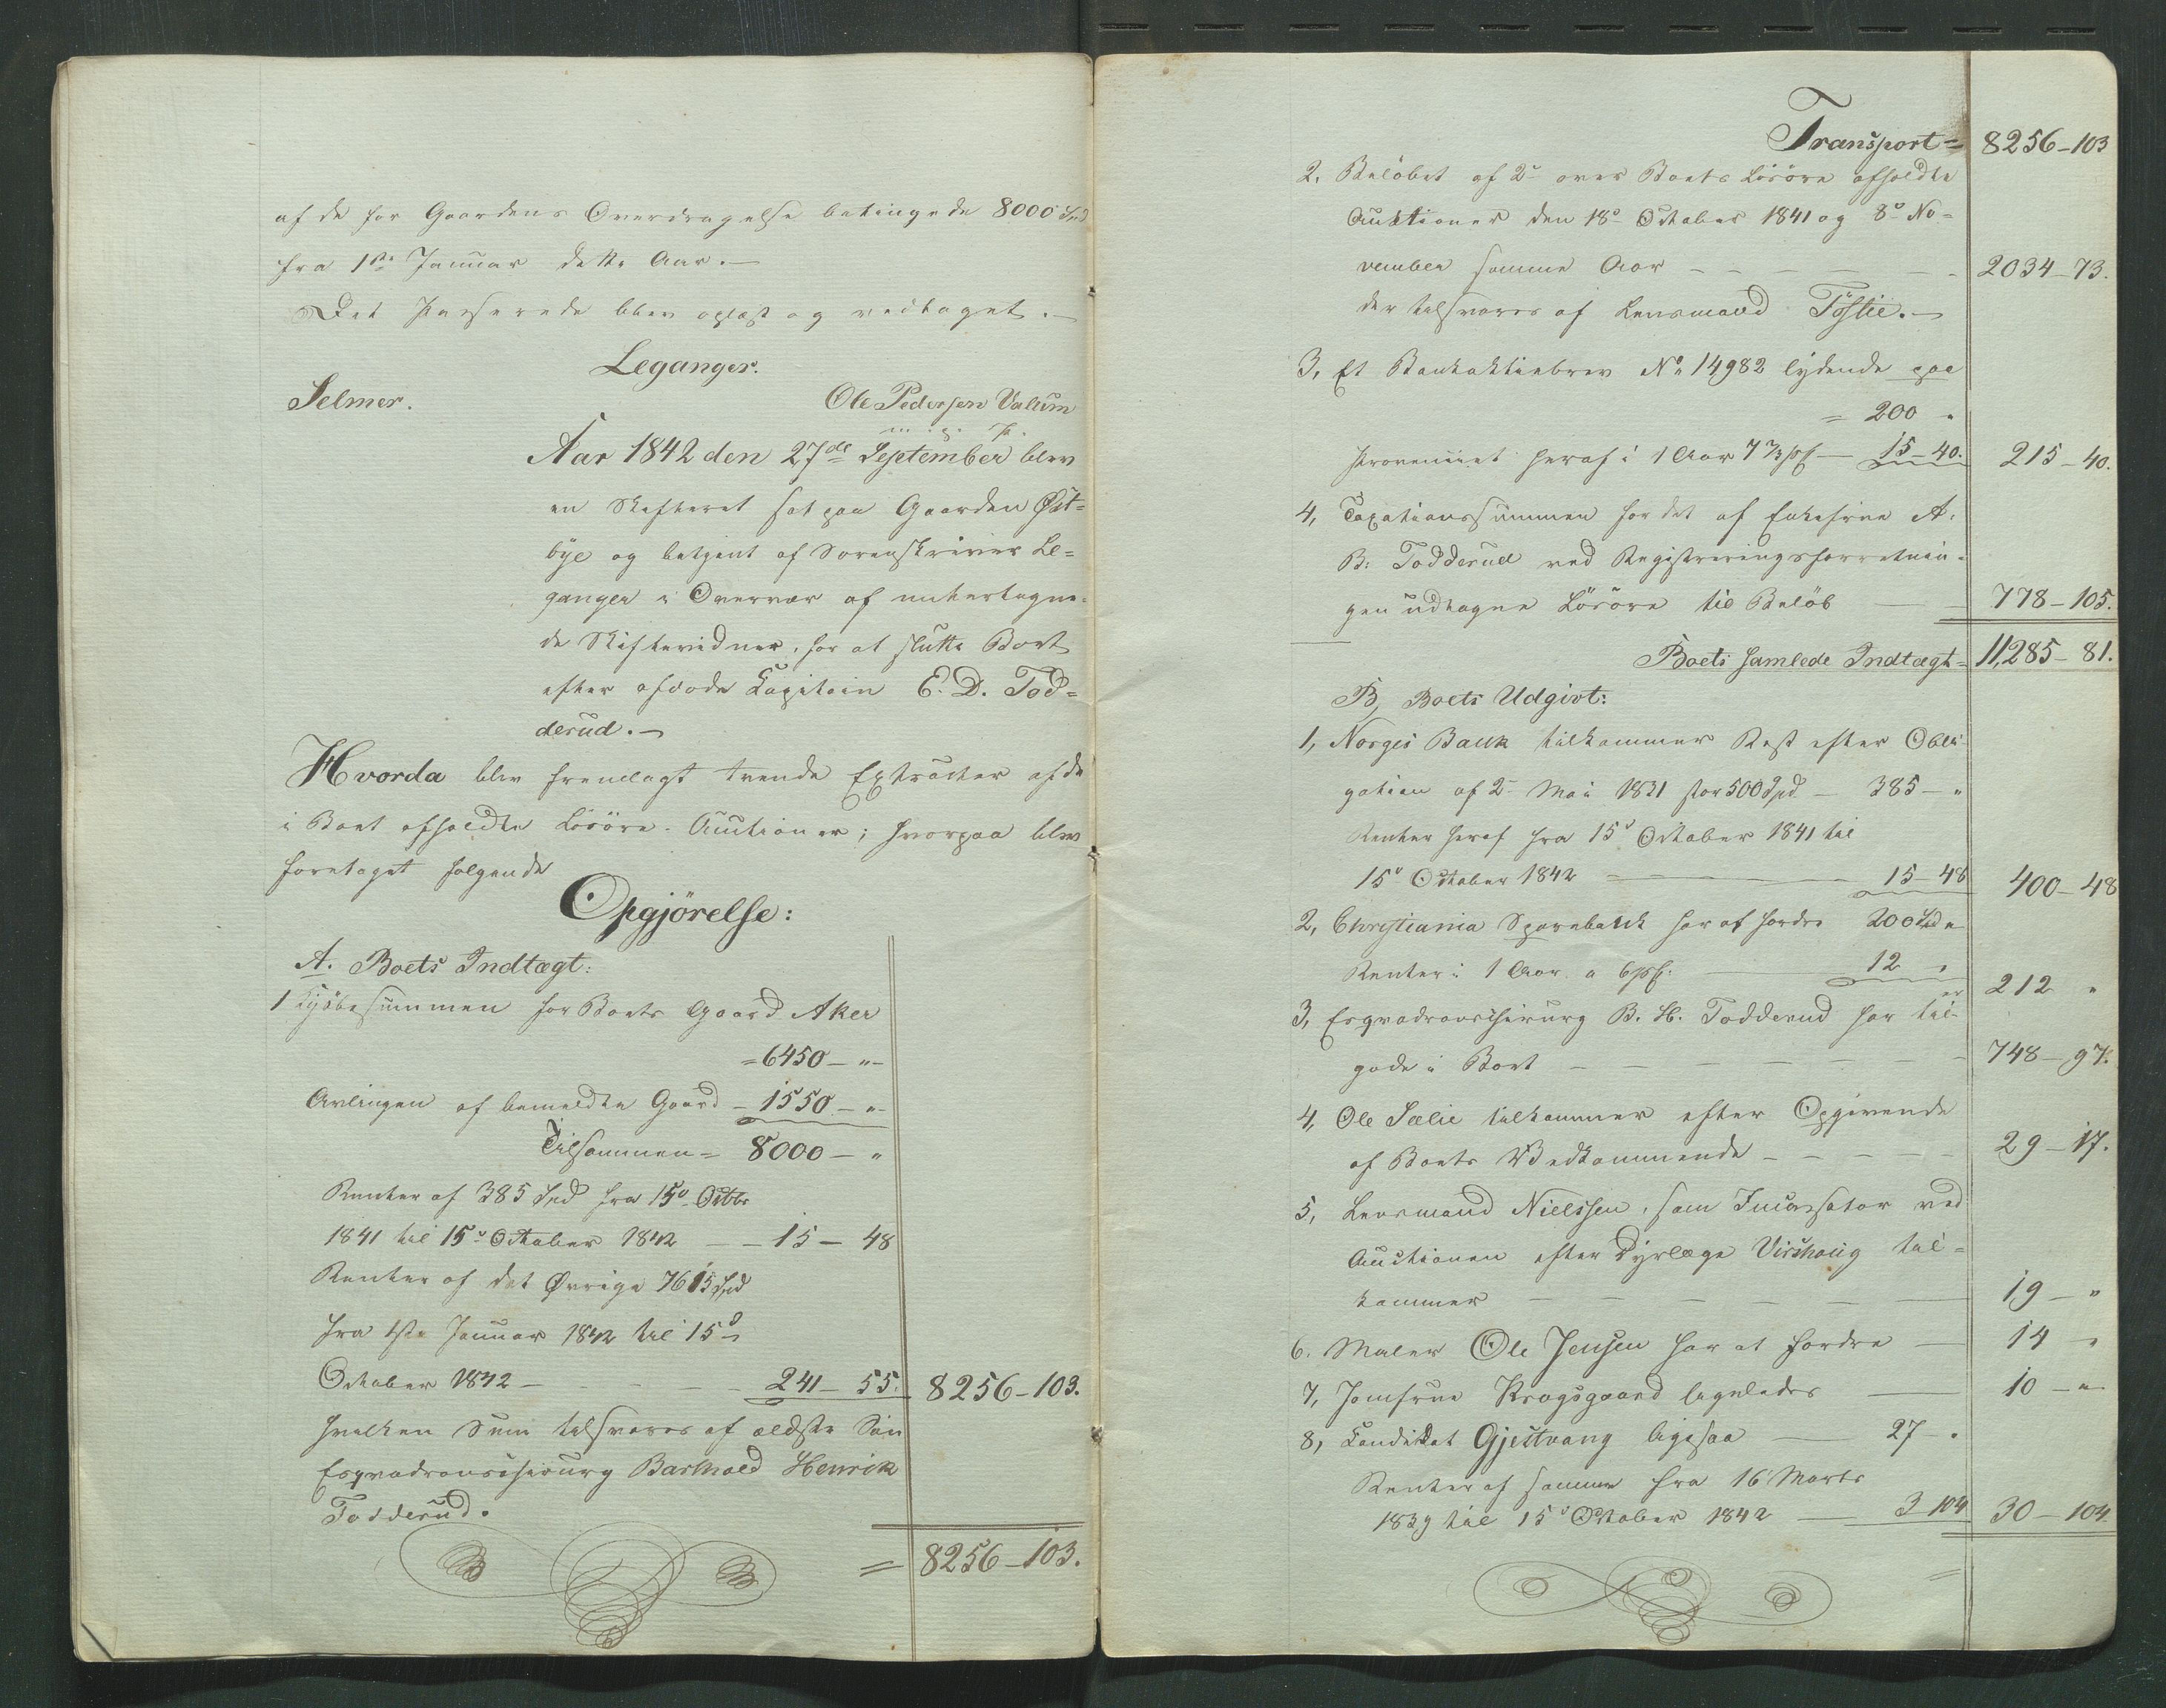 af de for Gaardens Overdragelse betingede 8000 Spd
fra 1ste Januar dette Aar.—
Det Passerede blev oplæst og vedtaget.—
Leganger.
Selmer. Ole Pedersen Valum
m. p. P.
Aar 1842 den 27de September blev
en Skifteret sat paa Gaarden Øst=
bye og betjent af Sorenskriver Le=
ganger i Overvær af undertegne=
de Skiftevidner, for at slutte Boet
efter afdøde Capitain E. D. Tod=
derud.—
Hvorda blev fremlagt tvende Extracter af de
i Boet afholdte Løsøre-Auctioner; hvorpaa blev
foretaget følgende
Opgjörelse:
A. Boets Indtægt:
1 Kjøbesummen for Boets Gaard Aker
=6450—"—
Avlingen af bemeldte Gaard —1550—"—
Tilsammen= 8000—"
Renter af 385 Spd fra 15d Octbr
1841 til 15d October 1842 —— 15—48
Renter af det Øvrige 7615 Spd
fra 1ste Januar 1842 til 15d
October 1842 — — — 241—55. 8256—103.
hvilken Sum tilsvares af ældste Søn
Esqvadronschirurg Barthold Henrik
Todderud.
= 8256—103.
Transport= 8256—103
2. Beløbet af 2de over Boets Løsøre afholdte
Auktioner den 18d October 1841 og 8d No=
vember samme Aar — — — — 2034—73.
der tilsvares af Lensmand Töstie.—
3, Et Bankaktiebrev No 14982 lydende paa
= 200 "
Provenuet heraf i 1 Aar 7 2/3 pC — 15—40. 215—40.
4, Taxationssummen for det af Enkefrue A.
B. Todderud ved Registreringsforretnin=
gen udtagne Lösöre til Beløb —— 778—105.
Boets samlede Indtægt= 11,285—81.
B, Boets Udgivt:
1, Norges Bank tilkommer Rest efter Obli=
gation af 2d Mai 1831 stor 500 Spd — 385—"
Renter heraf fra 15d October 1841 til
15d October 1842 —— 15—48 400—48
2, Christiania Sparebank har at fordre 200 Spd "
Renter i 1 Aar a 6 pC: — 12 " 212 "
3, Esqvadronschirurg B. H. Todderud har til=
gode i Boet — — — — — 748—97.
4, Ole Sælie tilkommer efter Opgivende
af Boets Vedkommende — — — — 29—17.
5, Lensmand Nielssen, som Incassator ved
Auctionen efter Dyrlæge Virshoug til=
kommer — — — — — 19—"
6. Maler Ole Jensen har at fordre — 14 "
7, Jomfrue Krogsgaard ligeledes —— 10—"
8, Candidat Gjestvang ligesaa —— 27 "
Renter af samme fra 16 Marts
1839 til 15d October 1842 —— 3 104 30—104.
=